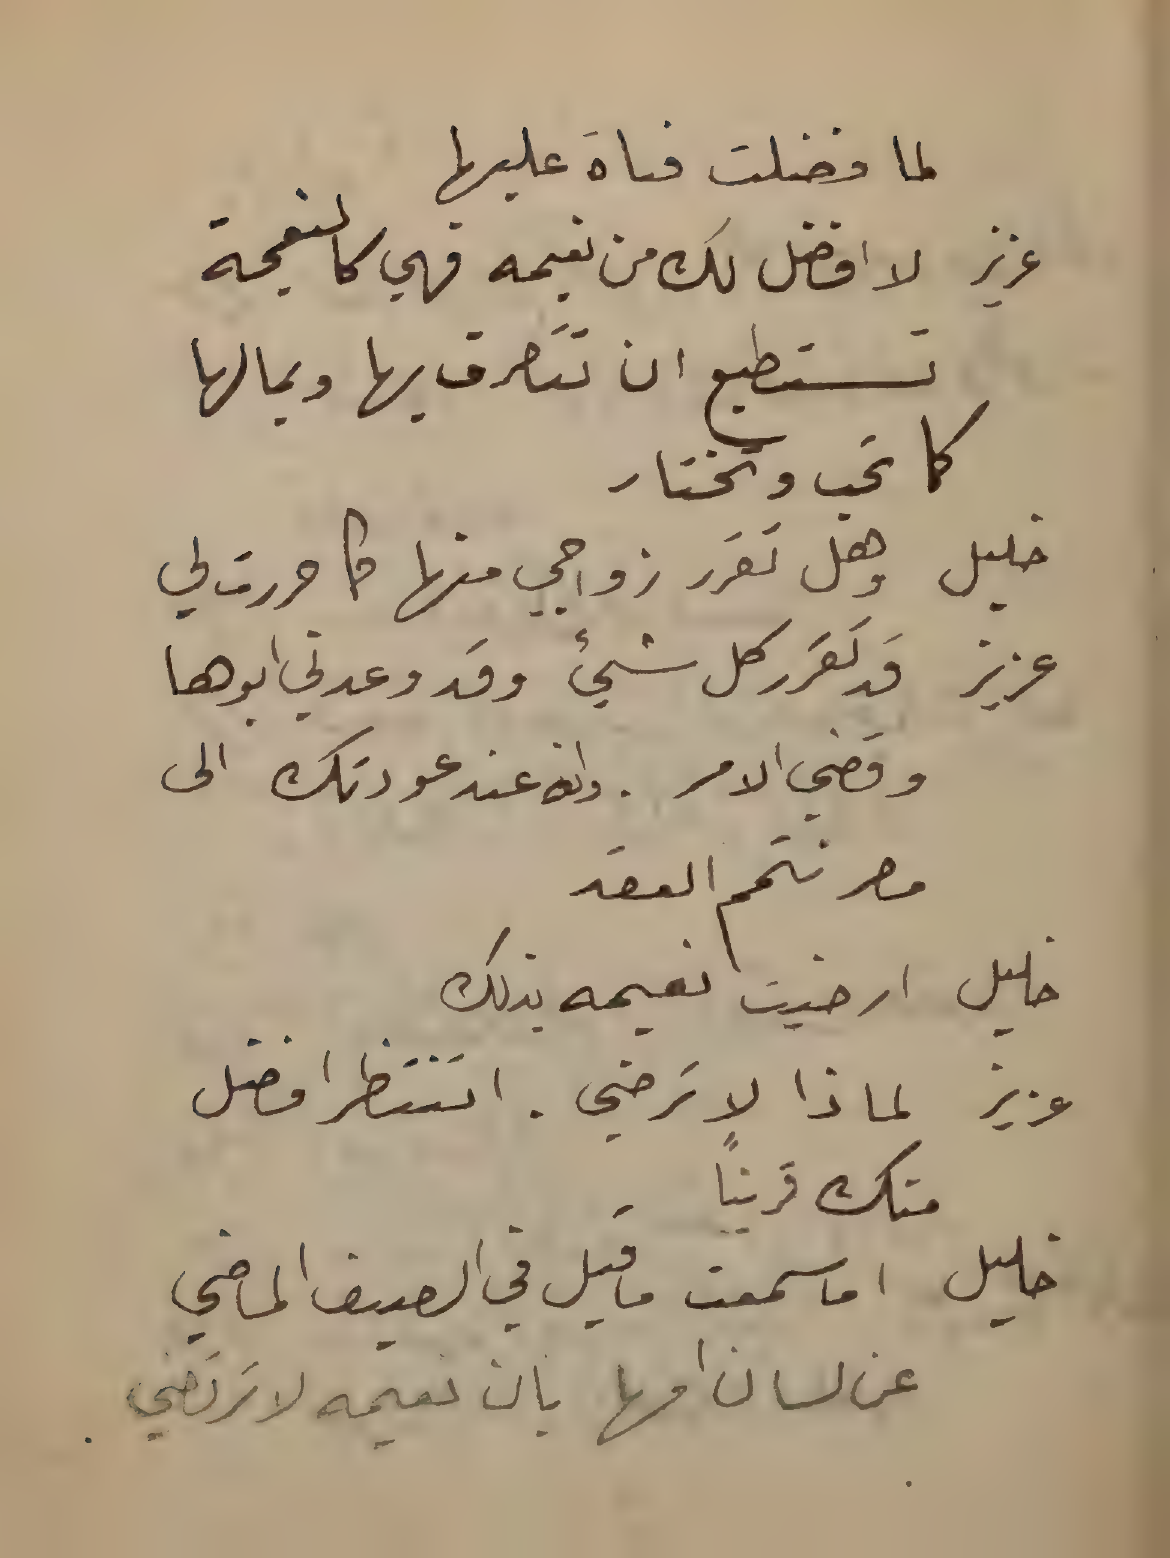 لما فضلت فتاة عليها
عزيز لا افضل لك من نعيمه فهي كالنعجة
تستطيع ان تتصرف بها وبمالها
كما تحب وتختار
خليل وهل تقرر زواجي منها كما حررت لي
عزيز قد تقرر كل شيئ وقد وعدني ابوها
وقضي الامر . وانه عند عودتك الى
مصر نتمم العقد
خليل ارضيت نعيمه بذلك
عزيز لماذا لا ترضى . اتنتظر افضل
منك قرينًا
خليل اما سمعت ما قيل في الصيف الماضي
عن لسان امها بان نعيمه لا ترتضي